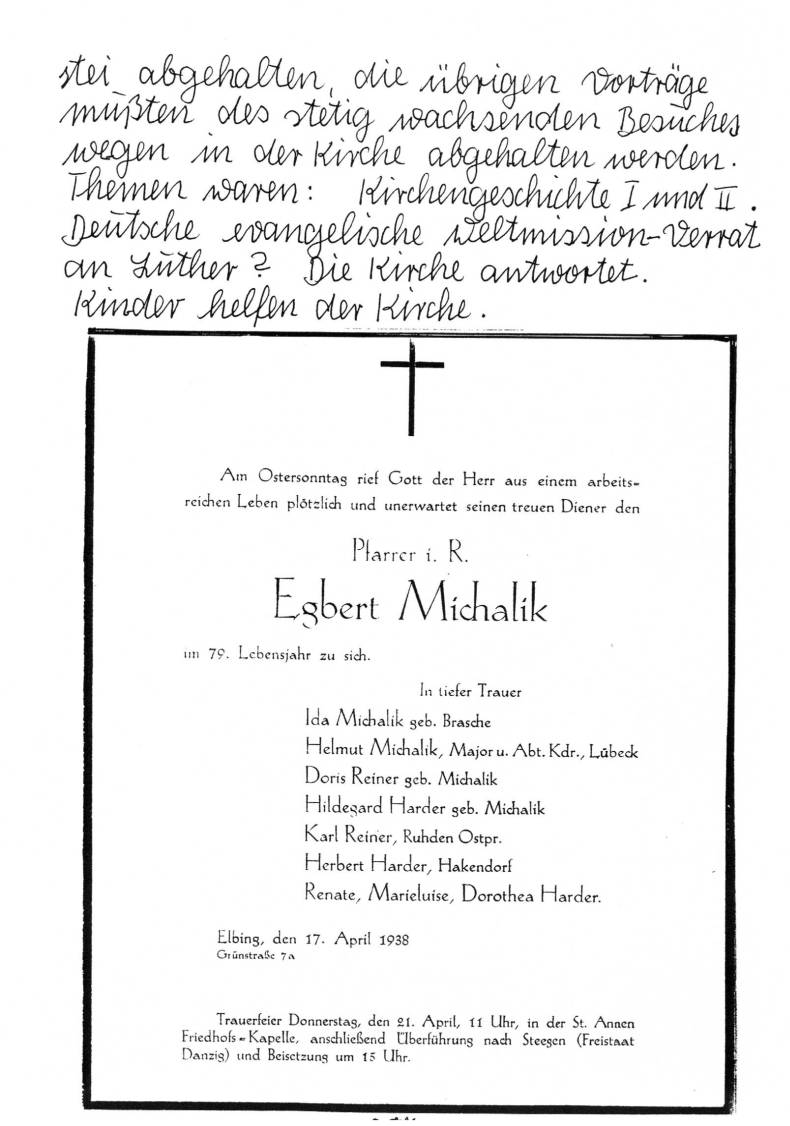 stei abgehalten, die übrigen Vorträge
müßten des stetig wachsenden Besuches
wegen in der Kirche abgehalten werden.
Themen waren: Kirchengeschichte I und II.
Deutsche evangelische Weltmission-Verrat
an Luther? Die Kirche antwortet.
Kinder helfen der Kirche.
Am Ostersonntag rief Gott der Herr aus einem arbeits-
reichen Leben plötzlich und unerwartet seinen treuen Diener den
Pfarrer i. R.
Egbert Michalik
im 79. Lebensjahr zu sich.
In tiefer Trauer
Ida Michalik geb. Brasche
Helmut Michalik, Major u. Abt. Kdr., Lübeck
Doris Reiner geb. Michalik
Hildegard Harder geb. Michalik
Karl Reiner, Ruhden Ostpr.
Herbert Harder, Hakendorf
Renate, Marieluise, Dorothea Harder.
Elbing, den 17. April 1938
Grünstraße 7a
Trauerfeier Donnerstag, den 21. April, 11 Uhr, in der St. Annen
Friedhofs-Kapelle, anschließend Überführung nach Steegen (Freistaat
Danzig) und Beisetzung um 15 Uhr.